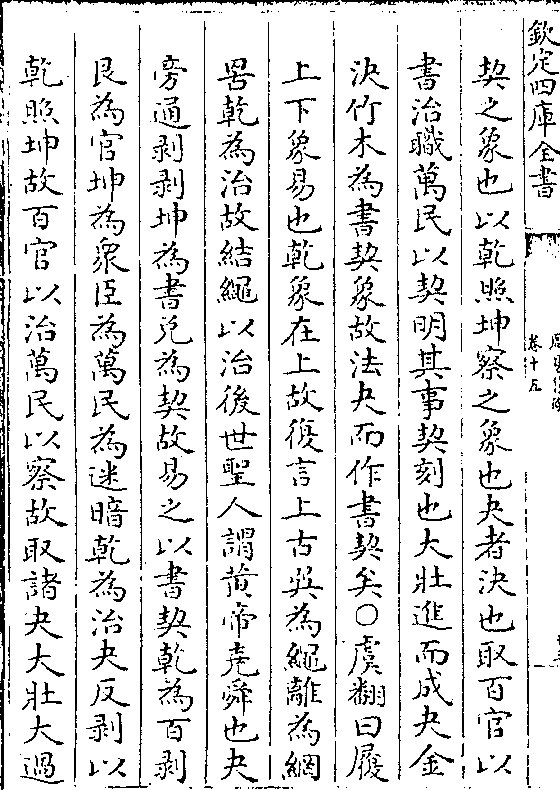 欽定四庫全書
卷十五
契之象也以乾照坤察之象也夬者決也取百官以
書治職萬民以契明其事契刻也大壯進而成夬金
決竹木為書契象故法夬而作書契矣○虞翻曰履
上下象易也乾象在上故復言上古巽為繩離為網
罟乾為治故結繩以治後世聖人謂黄帝堯舜也夬
旁通剥剥坤為書兑為契故易之以書契乾為百剥
艮為官坤為衆臣為萬民為迷暗乾為治夬反剥以
乾照坤故百官以治萬民以察故取諸夬大壯大過